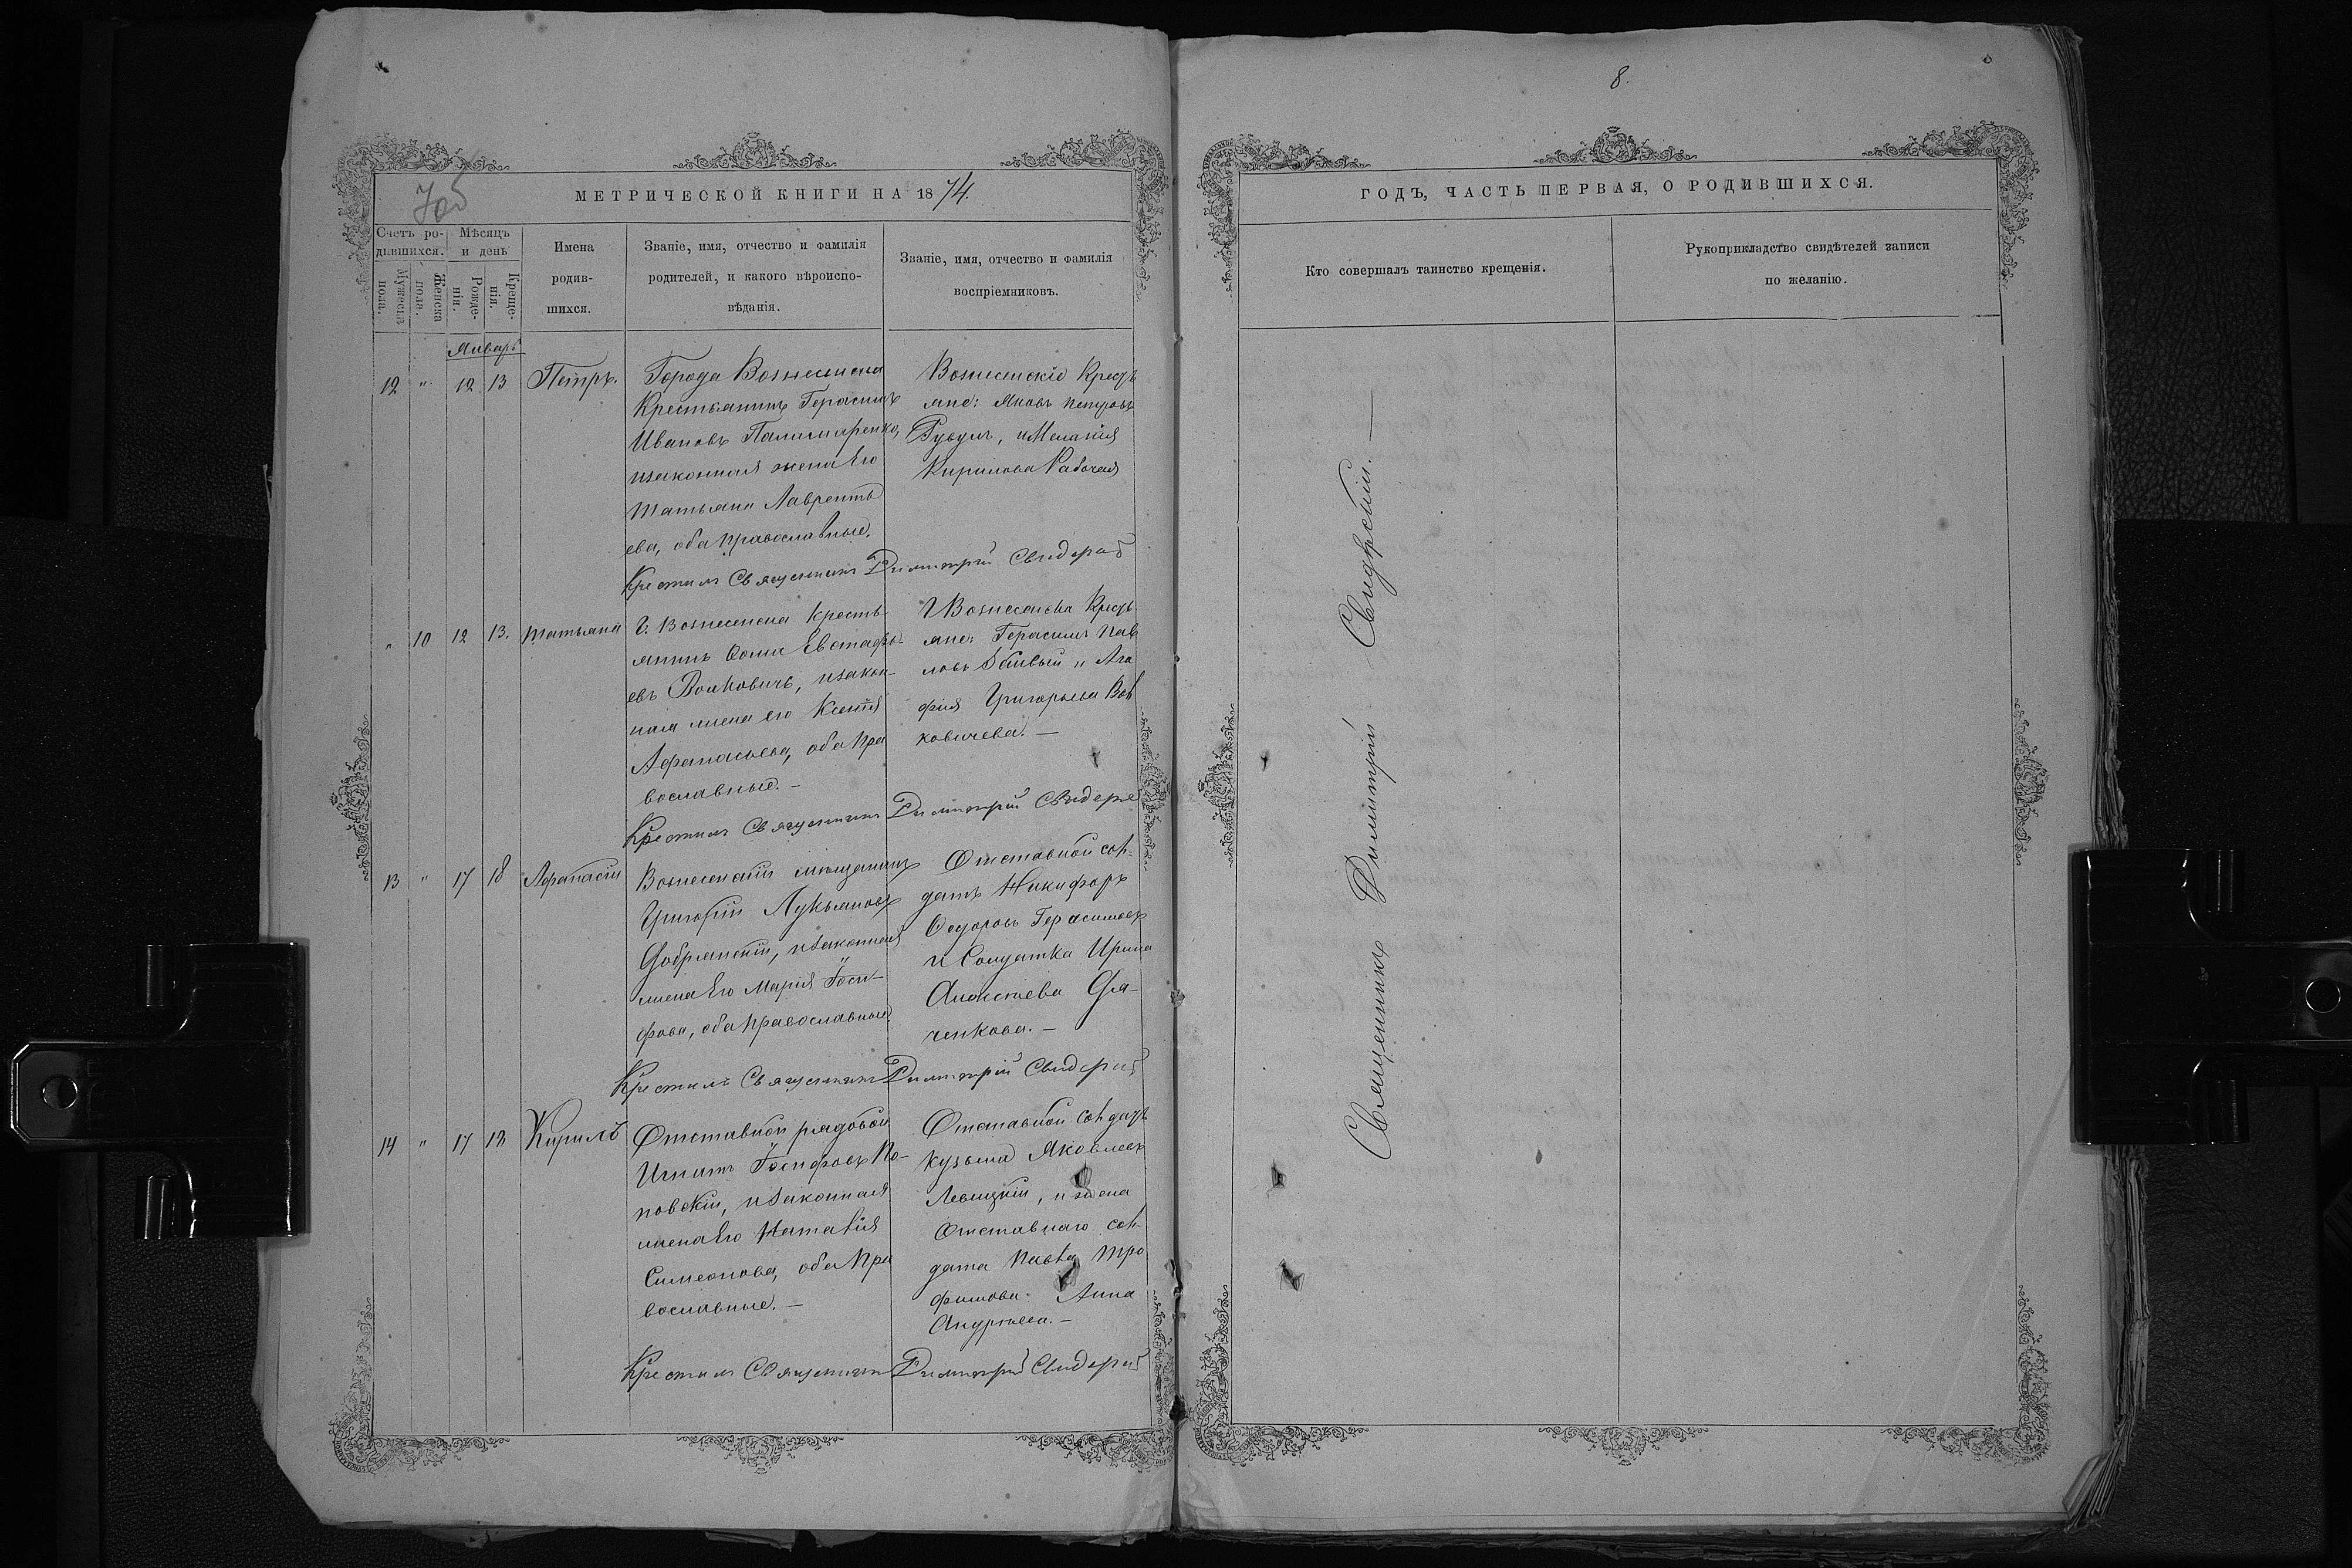 8.
705
МЕТРИЧЕСКОЙ КНИГИ НА 1874.
Счетъ ро-
дившихся.
Мѣсяцъ
и день
Мужеска
пола.
Женска
пола.
Рожде-
нія.
Креще-
нія.
Имена
родив-
шихся.
Званіе, имя, отчество и фамилія
родителей, и какого вѣроиспо-
вѣданія.
Званіе, имя, отчество и фамилія
воспріемниковъ.
Январь
12 " 12 13 Петръ.
Города Вознесенска
Крестьянинъ Герасимъ
Ивановъ Паламаренко,
и законная жена Его
Татьяна Лавренть
ева, оба православные.
Вознесенскіе Кресть
яне: Яковъ Петровъ
и Меланія
Кирилова Рабочая
Крестилъ Священникъ Димитрій
" 10 12 13. Татьяна
Г. Вознесенска кресть-
янинъ Фома Евстафь-
евъ Волковичъ, и закон-
ная жена его Ксенія
Афанасьева, оба пра
вославные. —
Г Вознесенска Кресть
яне: Герасимъ Пав
ловъ и Ага
фія Григорьева Вов
ковичева. —
Крестилъ Священникъ Димитрій
13 " 17 18 Афанасій
Вознесенскій мѣщанинъ
Григорій Лукьяновъ
Добрянскій, и законная
жена Его Марія Іоси-
фова, оба православные.
Отставной сол-
датъ Никифоръ
Ѳедоровъ Герасимовъ
и Солдатка Ирина
Алексѣева Дя-
ченкова. —
Крестилъ Священникъ Димитрій
14 " 17 18 Кирилъ
Отставной рядовой
Игнатъ Іосифовъ По-
повскій, и законная
жена Его Наталія
Симеонова, оба Пра
вославные. —
Отставной солдатъ
Кузьма Яковлевъ
Левицкій, и жена
Отставнаго сол-
дата Павла Тро
фимова Анна
Андреева. —
Крестилъ Священникъ Димитрій
ГОДЪ, ЧАСТЬ ПЕРВАЯ, О РОДИВШИХСЯ.
Кто совершалъ таинство крещенія.
Рукоприкладство свидѣтелей записи
по желанію.
Священникъ Димитрій Свидерскій. —